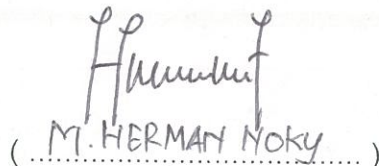 ( M. HERMAN NOKY )